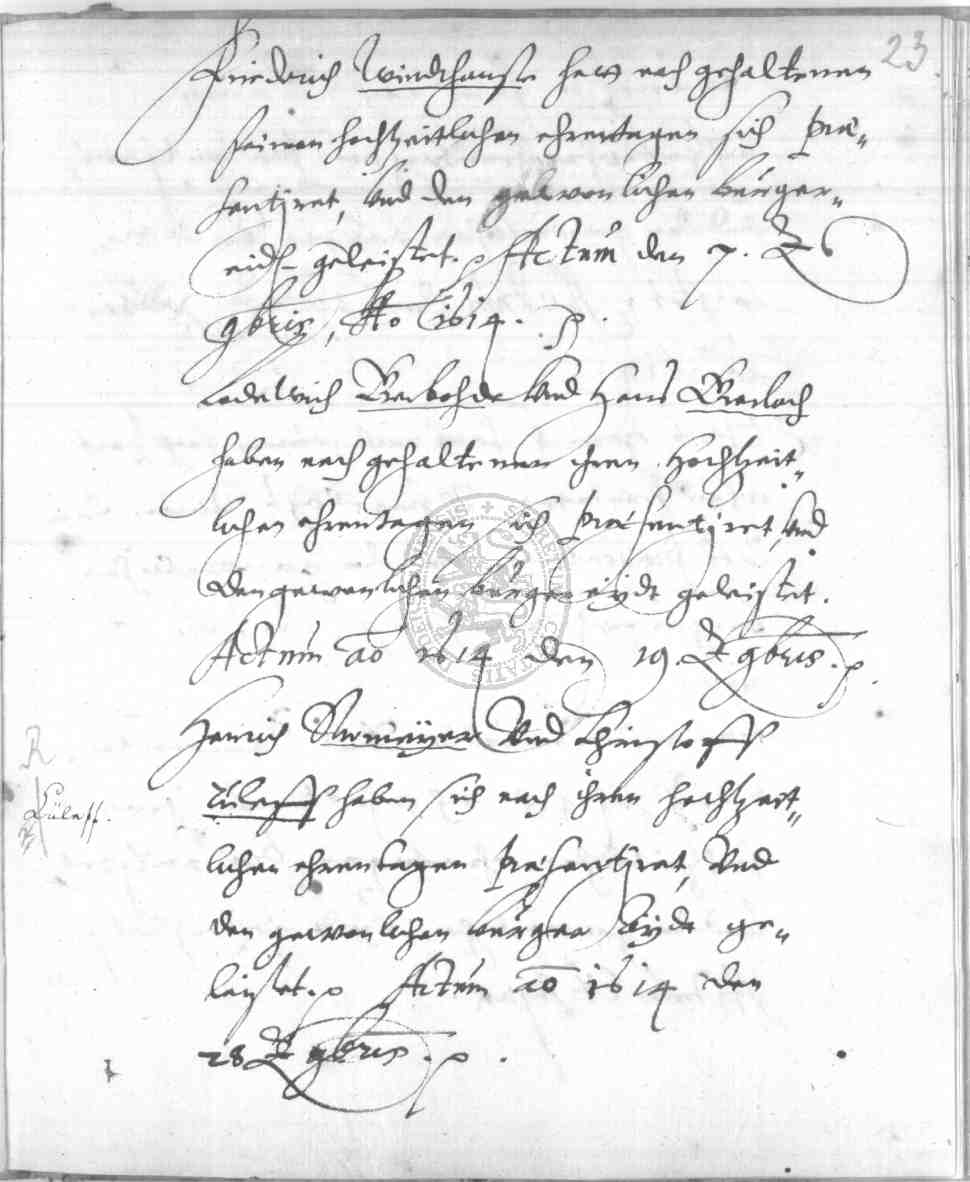 23
Friedrich Windthauß hatt nach gehaltenen
seinen hochzeitlichen ehrentagen sich præ„
sentiret, Vnd den gewonlichen bürger„
eidt geleistet. Actum den 7.
9bris, Ao 1614.
Lodewich Vnd Hans Gerlach
haben nach gehaltenen ihren Hochtzeit„
lichen ehrentagen sich præsentiret, Vnd
den gewonlichen bürger eÿdt geleistet.
Actum ao 1614 den 19. 9bris.
Henrich Vnd Christoff
Züleff haben sich nach ihren hochtzeit„
lichen ehrentagen præsentiret, Vnd
den gewonlichen bürger Eÿdt ge„
leistet. Actum ao 1614 den
28 9bris.
Züleff.